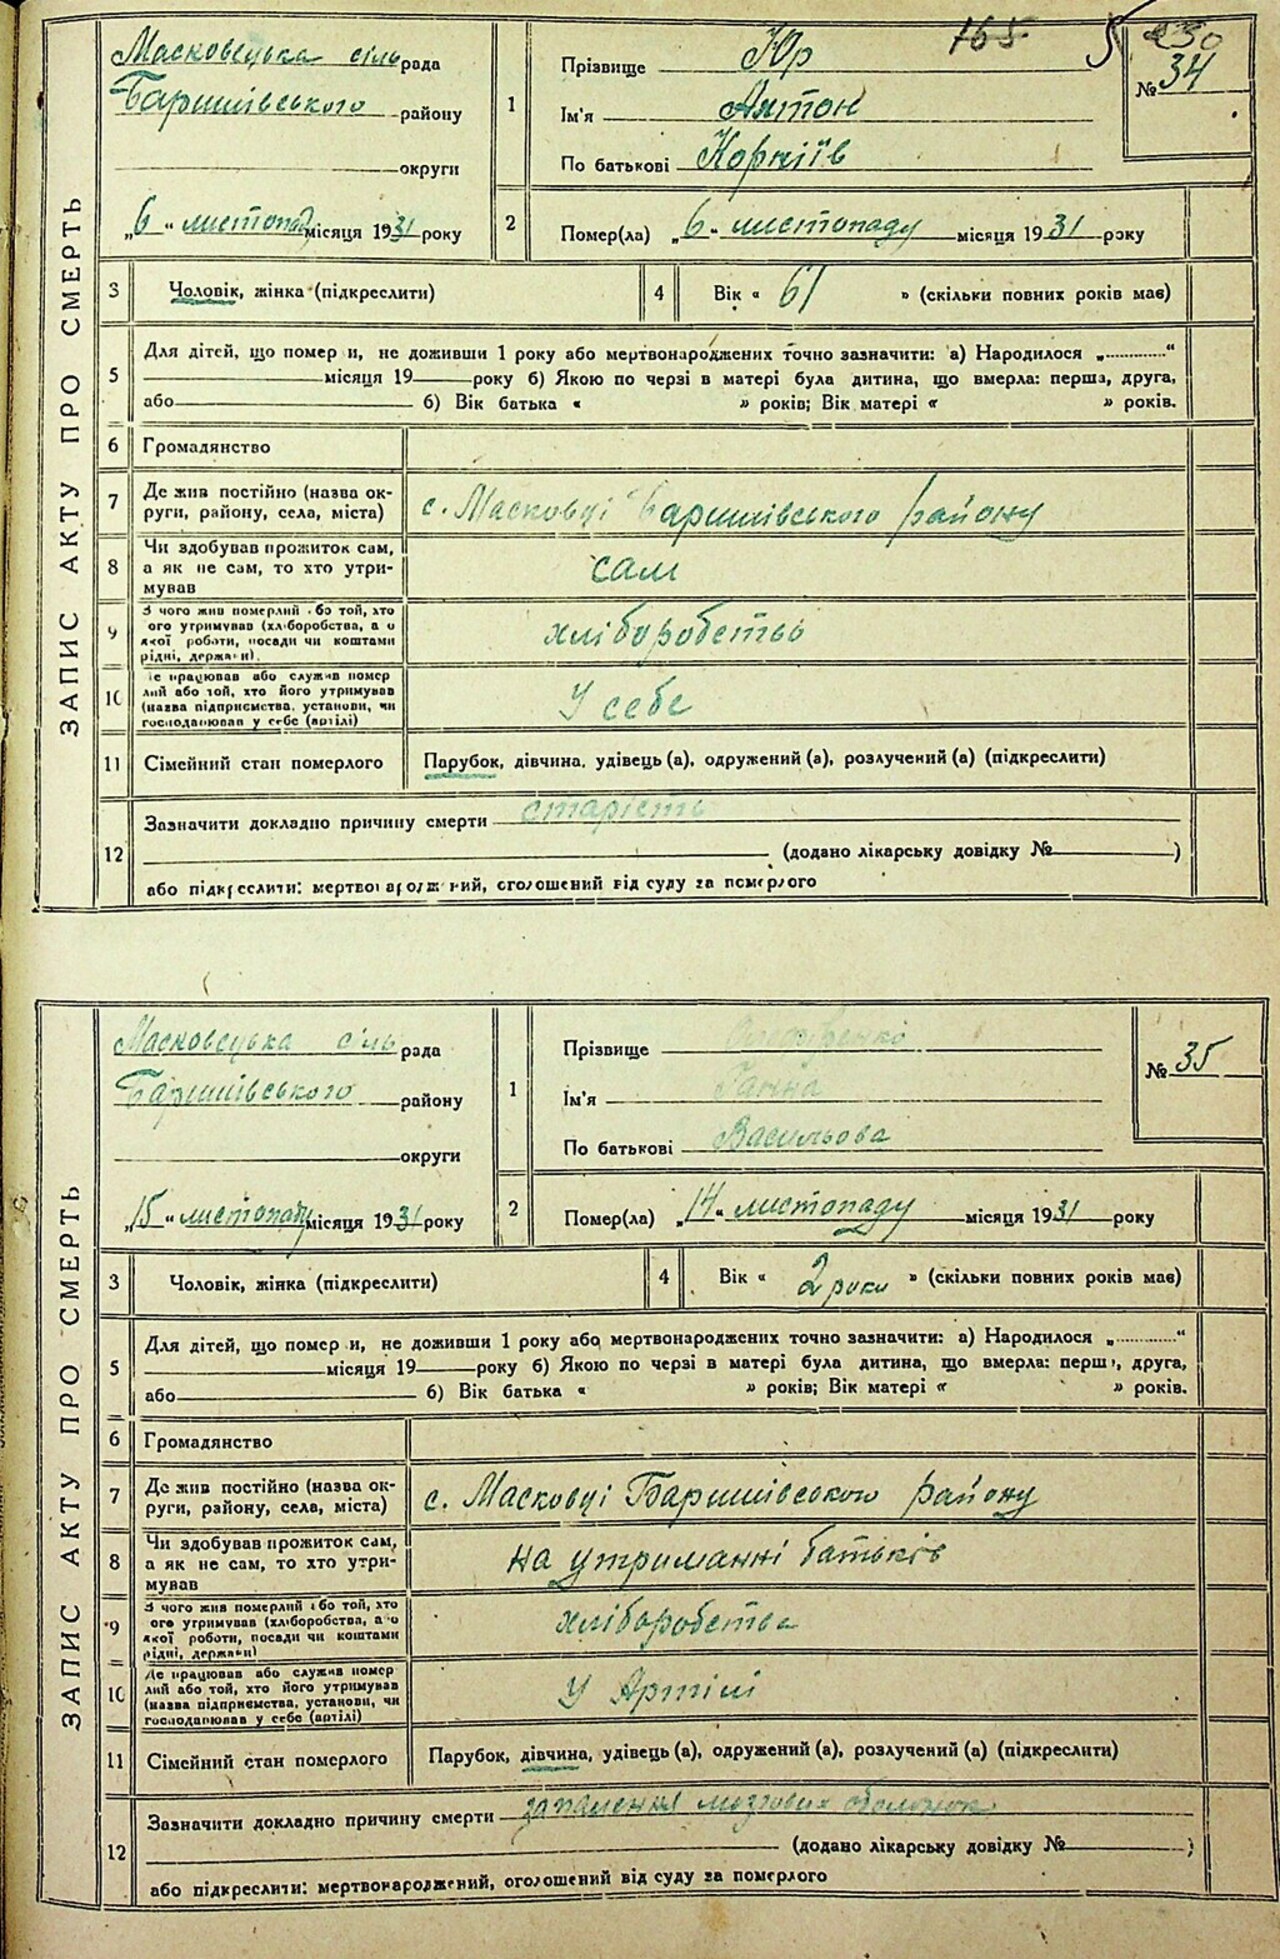 165 5 230
ЗАПИС АКТУ ПРО СМЕРТЬ
Масковецька сіль рада
Баришівського району
округи
„6“ листопаду місяця 1931 року
1
Прізвище Юр
Ім'я Антон
По батькові Корніїв
№ 34
2 Помер(ла) „6“ листопаду місяця 1931 року
3 Чоловік, жінка (підкреслити)
4 Вік « 61 » (скільки повних років має)
5 Для дітей, що помер и, не доживши 1 року або мертвонароджених точно зазначити: а) Народилося „............“
місяця 19 року б) Якою по черзі в матері була дитина, що вмерла: перша, друга,
або б) Вік батька « » років; Вік матері « » років.
6 Громадянство
7 Де жив постійно (назва ок-
руги, району, села, міста) с. Масковці Баришівського району
8 Чи здобував прожиток сам,
а як не сам, то хто утри-
мував
сам
9 З чого жив померлий бо той, хто
ого утримував (хліборобства, а о
якої роботи, посади чи коштами
рідні, держави).
хліборобство
10 е працював або служив помер
лий або той, хто його утримував
(назва підприємства, установи, чи
господарював у себе (артілі)
У себе
11 Сімейний стан померлого Парубок, дівчина, удівець (а), одружений (а), розлучений (а) (підкреслити)
12 Зазначити докладно причину смерти старість
(додано лікарську довідку № )
або підкреслити: мертвонароджений, оголошений від суду за померлого
ЗАПИС АКТУ ПРО СМЕРТЬ
Масковецька сіль рада
Баришівського району
округи
„15“ листопаду місяця 1931 року
1
Прізвище
Ім'я Ганна
По батькові Васильова
№ 35
2 Помер(ла) „14“ листопаду місяця 1931 року
3 Чоловік, жінка (підкреслити)
4 Вік « 2 роки » (скільки повних років має)
5 Для дітей, що помер и, не доживши 1 року або мертвонароджених точно зазначити: а) Народилося „............“
місяця 19 року б) Якою по черзі в матері була дитина, що вмерла: перш , друга,
або б) Вік батька « » років; Вік матері « » років.
6 Громадянство
7 Де жив постійно (назва ок-
руги, району, села, міста) с. Масковці Баришівського району
8 Чи здобував прожиток сам,
а як не сам, то хто утри-
мував
на утриманні батьків
9 З чого жив померлий бо той, хто
ого утримував (хліборобства, а о
якої роботи, посади чи коштами
рідні, держави)
хліборобства
10 Де працював або служив помер
лий або той, хто його утримував
(назва підприємства, установи, чи
господарював у себе (артілі)
У Артілі
11 Сімейний стан померлого Парубок, дівчина, удівець (а), одружений (а), розлучений (а) (підкреслити)
12 Зазначити докладно причину смерти запалення мозгових оболонок
(додано лікарську довідку № )
або підкреслити: мертвонароджений, оголошений від суду за померлого